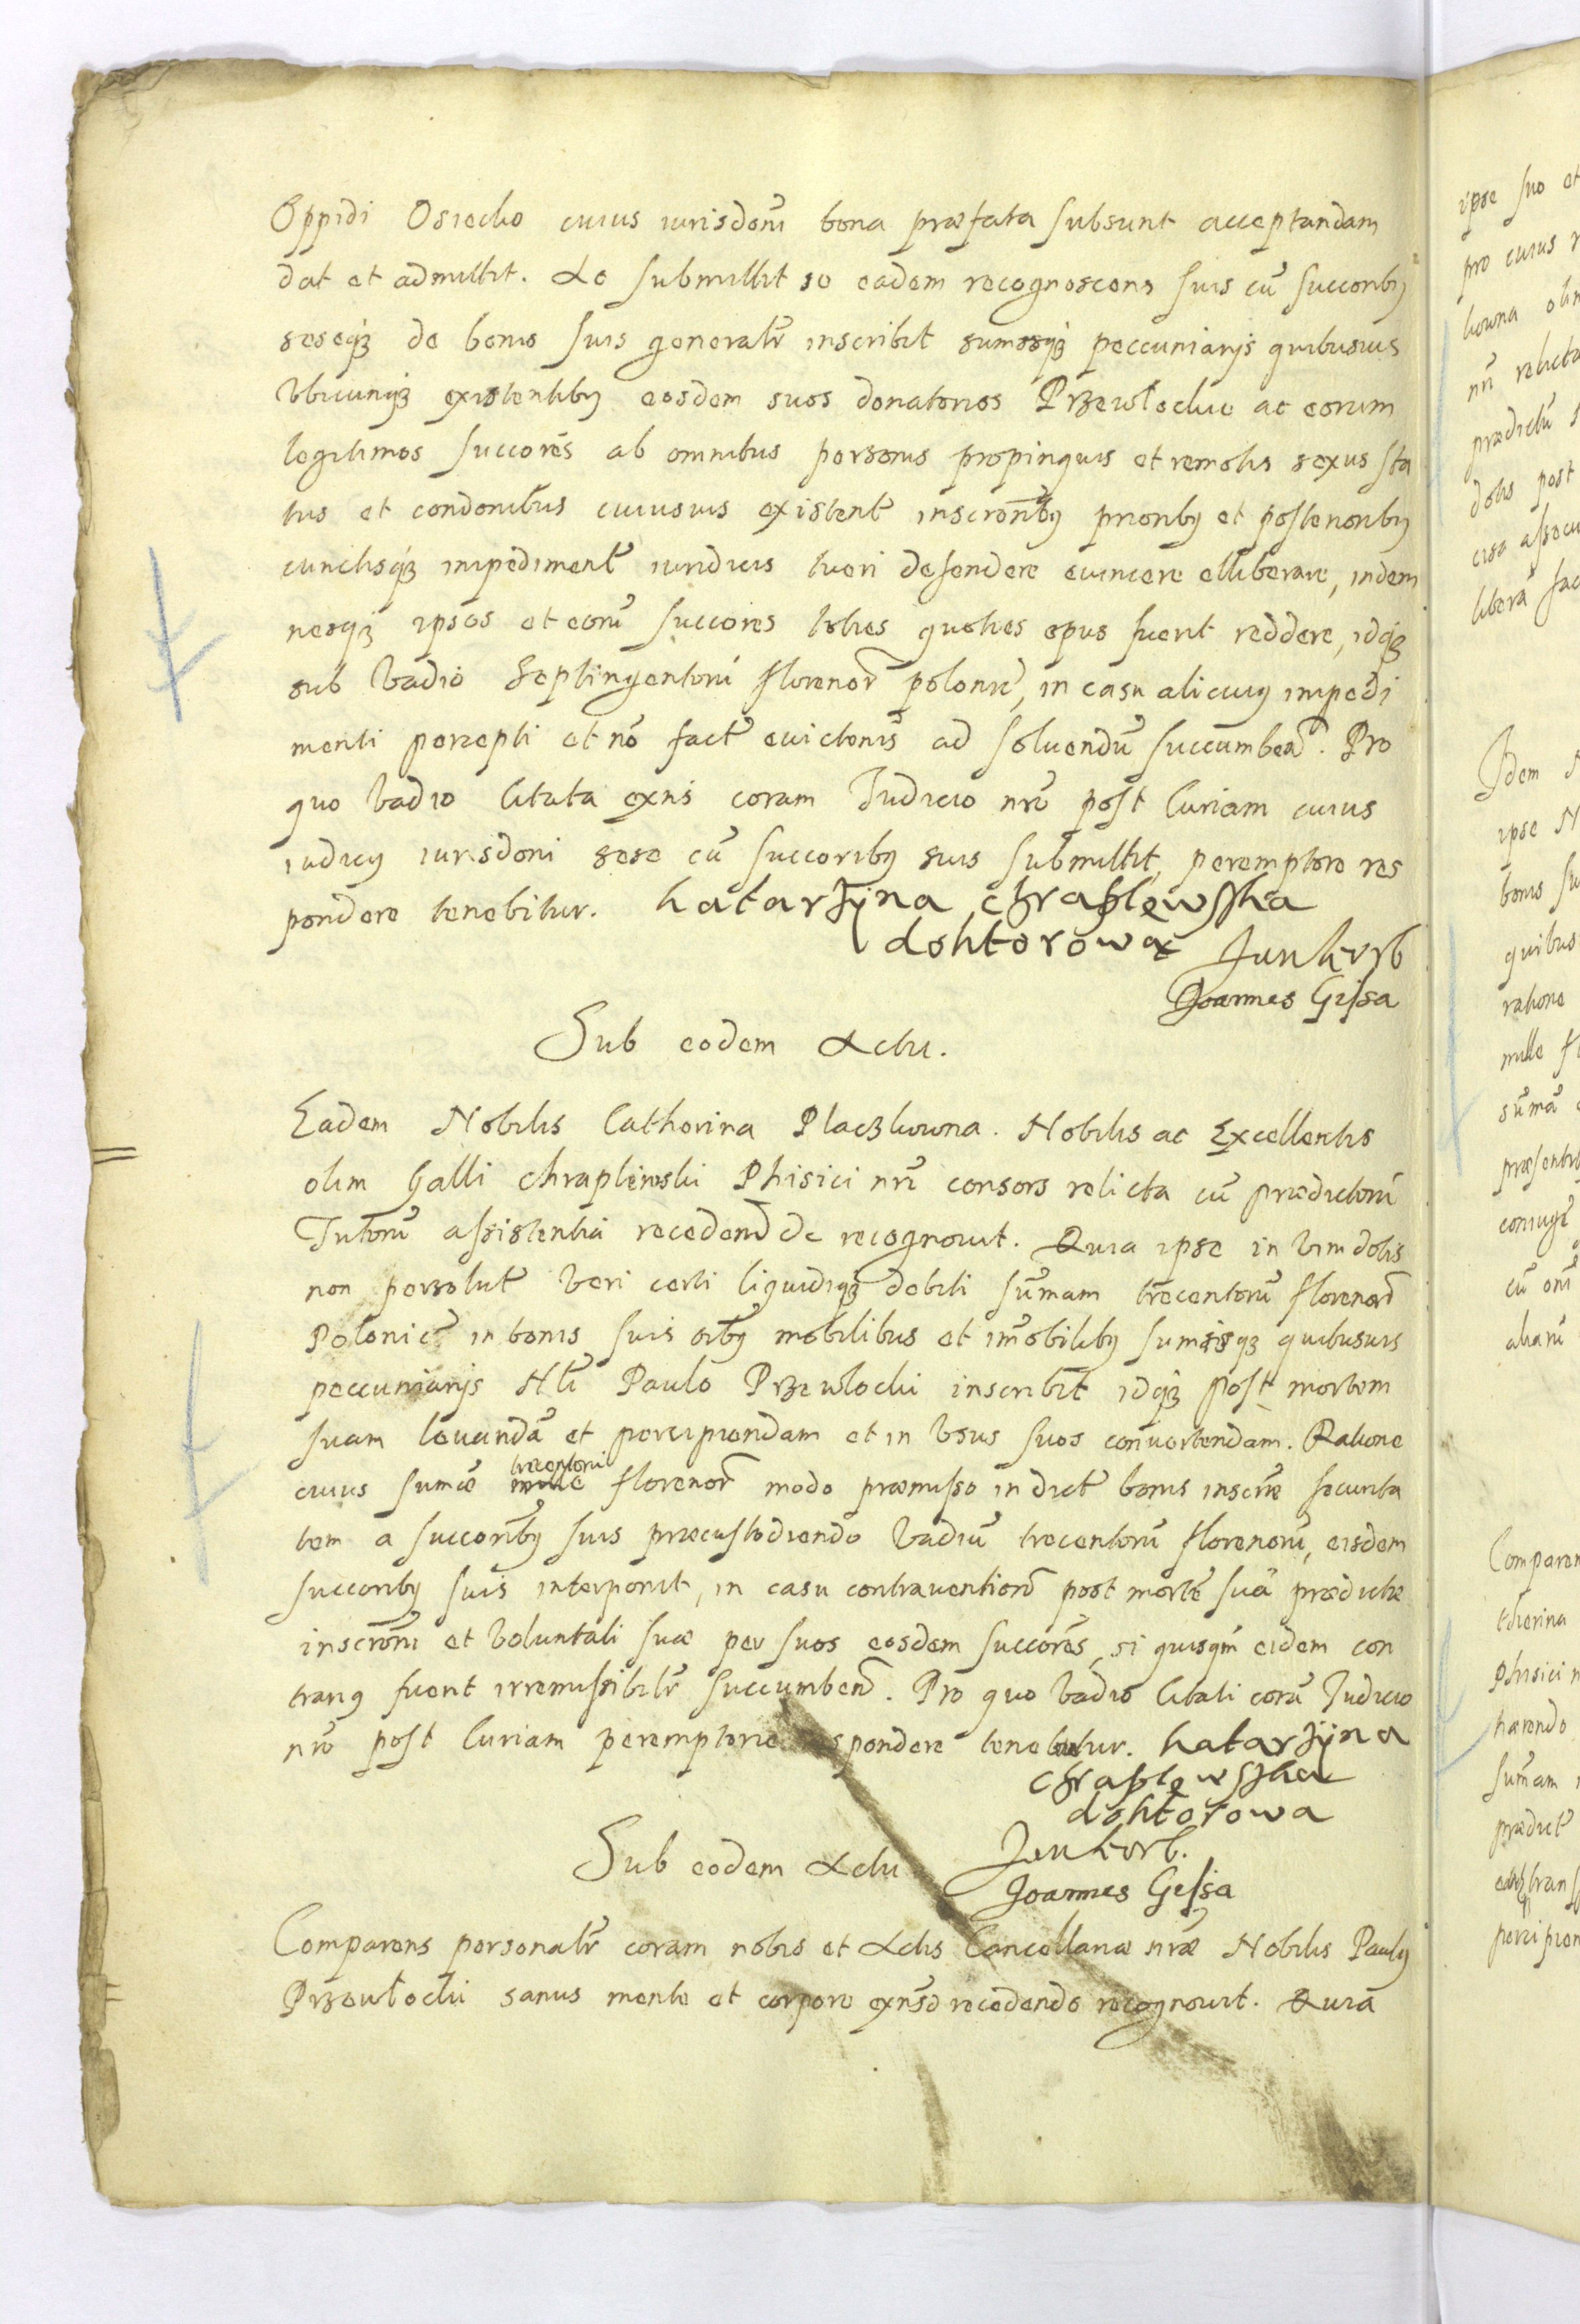 Oppidi Osiecko cuius iurisdoni bona præfata subsunt acceptandam
dat et admittit. Ac submittit se eadem recognoscens suis cũ succoribꝫ
seseqꝫ de bonis suis generalr̃ inscribit sumisqꝫ peccuniarijs quibusuis
Vbicunqꝫ existentibꝫ eosdem suos donatorios Przewlockie ac eorum
legitimos succores ab omnibus personis propinquis et remotis sexus sta
tus et condonibus cuiusuis existent̃ inscronibꝫ prioribꝫ et posterioribꝫ
cunctisqꝫ impediment̃ iuridicis tueri defendere euincere elliberare, indem
nesqꝫ ipsos et eorũ succores toties quoties opus fuerit reddere, idqꝫ
sub Vadio Septingentorũ florenor̃ polonic̃, in casu alicuiꝫ impedi
menti percepti et nõ fact̃ euictonis ad soluendũ succumbend̃. Pro
quo Vadio Citata exñs coram Iudicio nrõ post Curiam cuius
iudicij iurisdoni sese cũ succoribꝫ suis submittit, peremptore res
pondere tenebitur. katarzijna chraplewska
doktorowa Jan korb
Joannes Gissa
Sub eodem Actu.
Eadem Nobilis Catherina Placzkowna. Nobilis ac Excellentis
olim Galli chraplewski Phisici nri consors relicta cũ prædictorũ
Tutorũ assistentia recedend̃ de recognouit. Quia ipse in Vim dotis
non persolut̃ Veri certi liquidiqꝫ debiti sũmam trecentorũ florenor̃
Polonic̃ in bonis suis oĩbꝫ mobilibus et imobilibꝫ sumisqꝫ quibusuis
peccuniarijs Nli Paulo Przewlocki inscribit idqꝫ post mortem
suam leuandã et percipiendam et in Vsus suos conuertendam. Ratione
cuius sumæ trecentorũ florenor̃ modo præmisso in dict̃ bonis inscrẽ securita
tem a succoribꝫ suis præcustodiendo Vadiũ trecentorũ florenorũ, eisdem
succoribꝫ suis interponit, in casu contrauentionĩ post mortẽ suã prædictæ
inscroni et Voluntati suæ per suos eosdem succores, si quisqm̃ eidem con
trariꝫ fuerit irremissibilr̃ succumbend̃. Pro quo Vadio Citati corã Iudicio
nrõ post Curiam peremptorie respondere tenebuntur. katarzijna
chraplewska
doktorowa
Sub eodem Actu Jan korb.
Joannes Gissa
Comparens personalr̃ coram nobis et Actis Cancellariæ nræ Nobilis Pauluꝫ
Przewłocki sanus mente et corpore exñs recedendo recognouit. Quia
ipse suo et
pro cuius
kowna olim
nri relicta
prædictũ
dotis post
libera fac
Idem N
ipse N
bonis su
quibus
ratione
mille fl
sũmã
præsentib
coniuge
cũ omi
aliarũ
Comparen
therina
Phisici n
hærendo
sumam
prædict̃